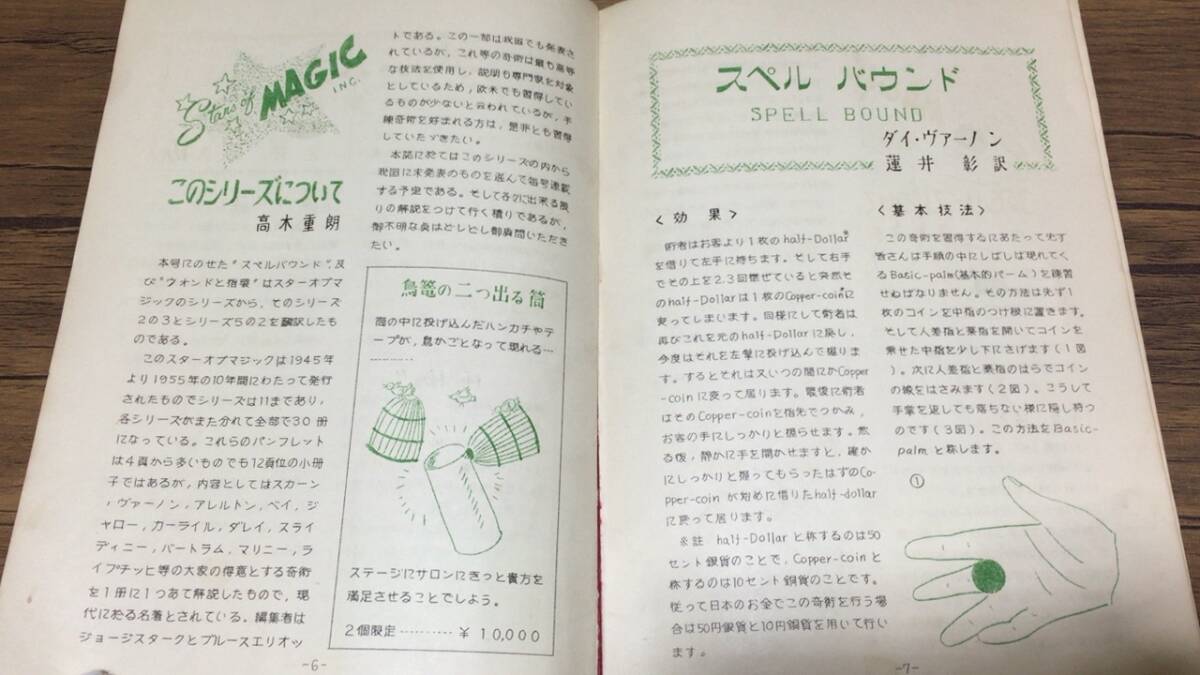 Stars of
MAGIC
INC.
このシリーズについて
高木重朗
本号にのせた“スペルバウンド”,及
び“ウォンドと指環”はスターオブマ
ジックのシリーズから,そのシリーズ
2の3とシリーズ5の2を翻訳したも
のである。
このスターオブマジックは1945年
より1955年の10年間にわたって発行
されたものでシリーズは11まであり,
各シリーズがまた分れて全部で30冊
になっている。これらのパンフレット
は4頁から多いものでも12頁位の小冊
子ではあるが,内容としてはスカーン
,ヴァーノン,アレルトン,ベイ,ジ
ャロー,カーライル,ダレイ,スライ
ディニー,バートラム,マリニー,ラ
イプチッヒ等の大家の得意とする奇術
を1冊に1つあて解説したもので,現
代に於る名著とされている。編集者は
ジョージスタークとブルースエリオッ
トである。この一部は我国でも発表さ
れているが,これ等の奇術は最も高等
な技法を使用し,説明も専門家を対象
としているため,欧米でも習得してい
るものが少ないと云われているが,手
練奇術を好まれる方は,是非とも習得
していたゞきたい。
本誌に於てはこのシリーズの内から
我国に未発表のものを選んで毎号連載
する予定である。そして各々に出来る限
りの解説をつけて行く積りであるが,
御不明な点はどしどし御質問いただき
たい。
鳥篭の二つ出る筒
筒の中に投げ込んだハンカチやテ
ープが,鳥かごとなって現れる…
…………
ステージにサロンにきっと貴方を
満足させることでしょう。
2個限定…………¥10,000
-6-
スペル バウンド
SPELL BOUND
ダイ・ヴァーノン
蓮井 彰訳
<効果>
術者はお客より1枚のhalf-Dollar※
を借りて左手に持ちます。そして右手
でその上を2.3回撫ぜていると突然そ
のhalf-Dollarは1枚のCopper-coin※に
変ってしまいます。同様にして術者は
再びこれを元のhalf-Dollarに戻し,
今度はそれを左掌に投げ込んで握りま
す。するとそれは又いつの間にかCopper
-coinに変って居ります。最後に術者
はそのCopper-coinを指先でつかみ,
お客の手にしっかりと握らせます。然
る後,静かに手を開かせますと,確か
にしっかりと握ってもらったはずのCo-
pper-coin が始めに借りたhalf-dollar
に戻って居ります。
※註 half-Dollarと称するのは50
セント銀貨のことで,Copper-coinと
称するのは10セント銅貨のことです。
従って日本のお金でこの奇術を行う場
合は50円銀貨と10円銅貨を用いて行い
ます。
<基本技法>
この奇術を習得するにあたって先ず
皆さんは手順の中にしばしば現れてく
るBasic-palm(基本的パーム)を練習
せねばなりません。その方法は先ず1
枚のコインを中指のつけ根に置きます。
そして人差指と薬指を開いてコインを
乗せた中指を少し下にさげます(1図
)。次に人差指と薬指のはらでコイン
の縁をはさみます(2図)。こうして
手掌を返しても落ちない様に隠し持つ
のです(3図)。この方法をBasic-
palmと称します。
①
-7-